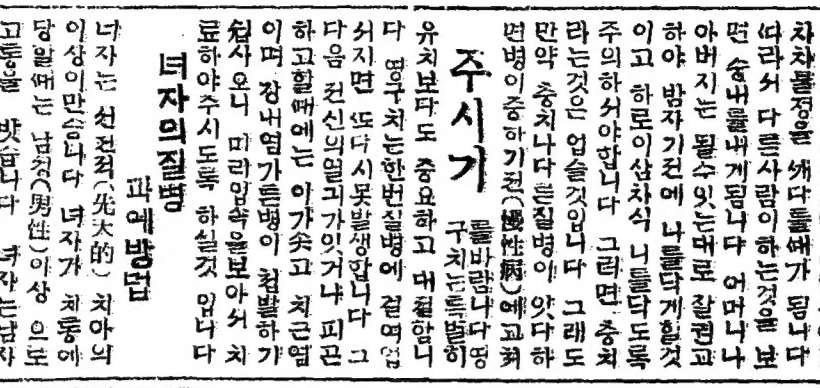 차차물정을 ᄭᅢ다를ᄯᅢ가 됨니다
ᄯᅡ라서 다른사람이하는것을 보
면 숭내를내게됨니다 어머니나
아버지는 될수잇는대로 잘권고
하야 밤자기전에 니를닥게할것
이고 하로이삼차식 니를닥도록
주의하서야합니다 그러면 충치
라는것은 업슬것입니다 그래도
만약 충치나다른질병이 잇다하
면병이중하기전(慢性病)에고처
주시기
를바람니다영
구치는특별히
유치보다도 중요하고 대절합니
다 영구치는한번질병에 걸여업
서지면 ᄯᅩ다시못발생합니다 그
다음 전신의열긔가잇거나 피곤
하고할ᄯᅢ에는 이가솟고 치근염
이며 장내염가튼병이 첩발하기
쉽사오니 미리입속을보아서 치
료하야주시도록 하실것 입니다
녀자의질병
과예방법
녀자는 선천적(先天的) 치아의
이상이만슴니다 녀자가 치통에
당할ᄯᅢ는 남성(男性)이상 으로
고통을 밧습니다 녀자는남자